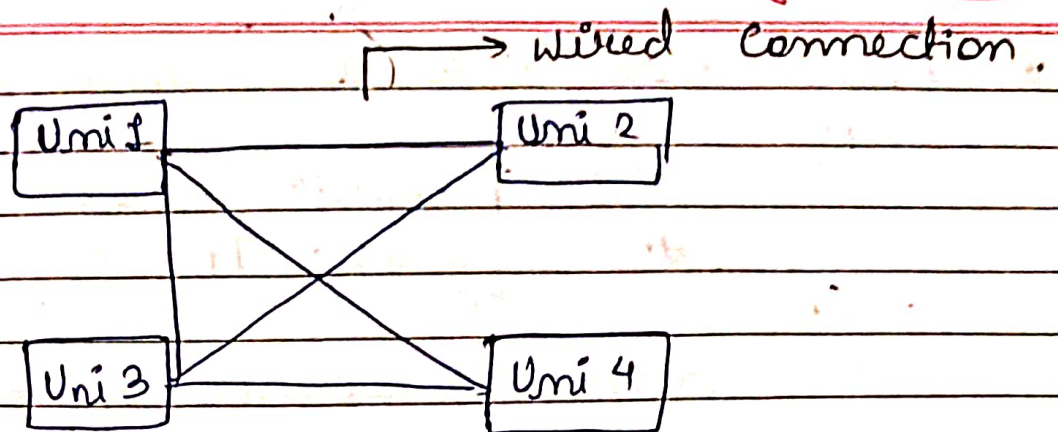 wired connection.
Uni 1 Uni 2
Uni 3 Uni 4